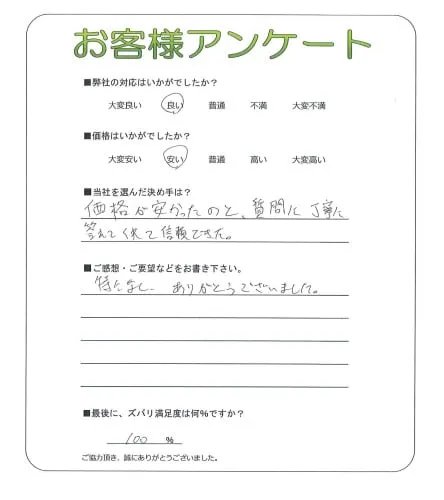 お客様アンケート
■弊社の対応はいかがでしたか?
大変良い 良い 普通 不満 大変不満
■価格はいかがでしたか?
大変安い 安い 普通 高い 大変高い
■当社を選んだ決め手は?
価格が安かったのと、質問に丁寧に
答えて くれて信頼できた。
■ご感想・ご要望などをお書き下さい。
特になし ありがとうございました。
■最後に、ズバリ満足度は何%ですか?
100 %
ご協力頂き、誠にありがとうございました。